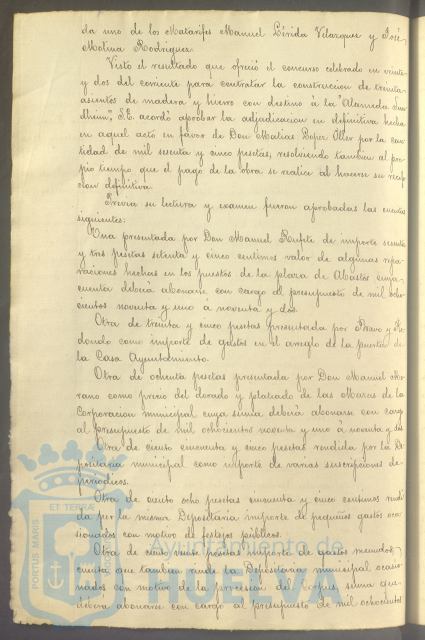 da uno de los Matarifes Manuel Lérida Velazquez y José
Molina Rodriguez.
Visto el resultado que ofreció el concurso celebrado en veinte
y dos del corriente para contratar la construccion de treinta
asientos de madera y hierro con destino á la "Alameda Sun
dheim", S.E. acordó aprobar la adjudicacion en definitiva hecha
en aquel acto en favor de Don Matias Lopez Oller por la can
tidad de mil sesenta y cinco pesetas, resolviendo tambien al pro
pio tiempo que el pago de la obra se realice al hacerse su recep
cion definitiva.
Previa su lectura y examen fueron aprobadas las cuentas
siguientes:
Una presentada por Don Manuel Rufete de importe sesenta
y tres pesetas setenta y cinco centimos valor de algunas repa
raciones hechas en los puestos de la plaza de Abastos cuya
cuenta deberá abonarse con cargo al presupuesto de mil ocho
cientos noventa y uno á noventa y dos.
Otra de treinta y cinco pesetas presentada por Bravo y Re
dondo como importe de gastos en el arreglo de la puerta de
la Casa Ayuntamiento.
Otra de ochenta pesetas presentada por Don Manuel Mo
rano como precio del dorado y plateado de las Mazas de la
Corporacion municipal cuya suma deberá abonarse con cargo
al presupuesto de mil ochocientos noventa y uno á noventa y dos
Otra de ciento cincuenta y cinco pesetas rendida por la De
positaria municipal como importe de varias suscripciones de
periodicos.
Otra de ciento ocho pesetas cincuenta y cinco centimos rendi
da por la misma Depositaria importe de pequeños gastos oca
sionados con motivo de festejos públicos.
Otra de ciento nueve pesetas importe de gastos menudos
cuenta que tambien rinde la Depositaria municipal ocasio
nados con motivo de la procesion del Corpus, suma que
debera abonarse con cargo al presupuesto de mil ochocientos
PORTUS MARIS
ET TERRAE
Ayuntamiento de
HUELVA